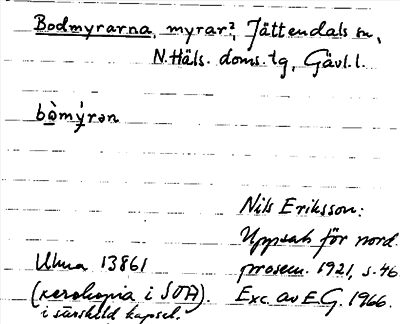 Bodmyrarna, myrar?, Jättendals sn,
N. Häls. doms. tg, Gävl. l.
bòmýrən
Nils Eriksson:
Uppsats för nord.
prosem. 1921, s. 46
Exc. av E.G. 1966.
Ulma 13861
(xerokopia i SOA).
i särskild kapsel.